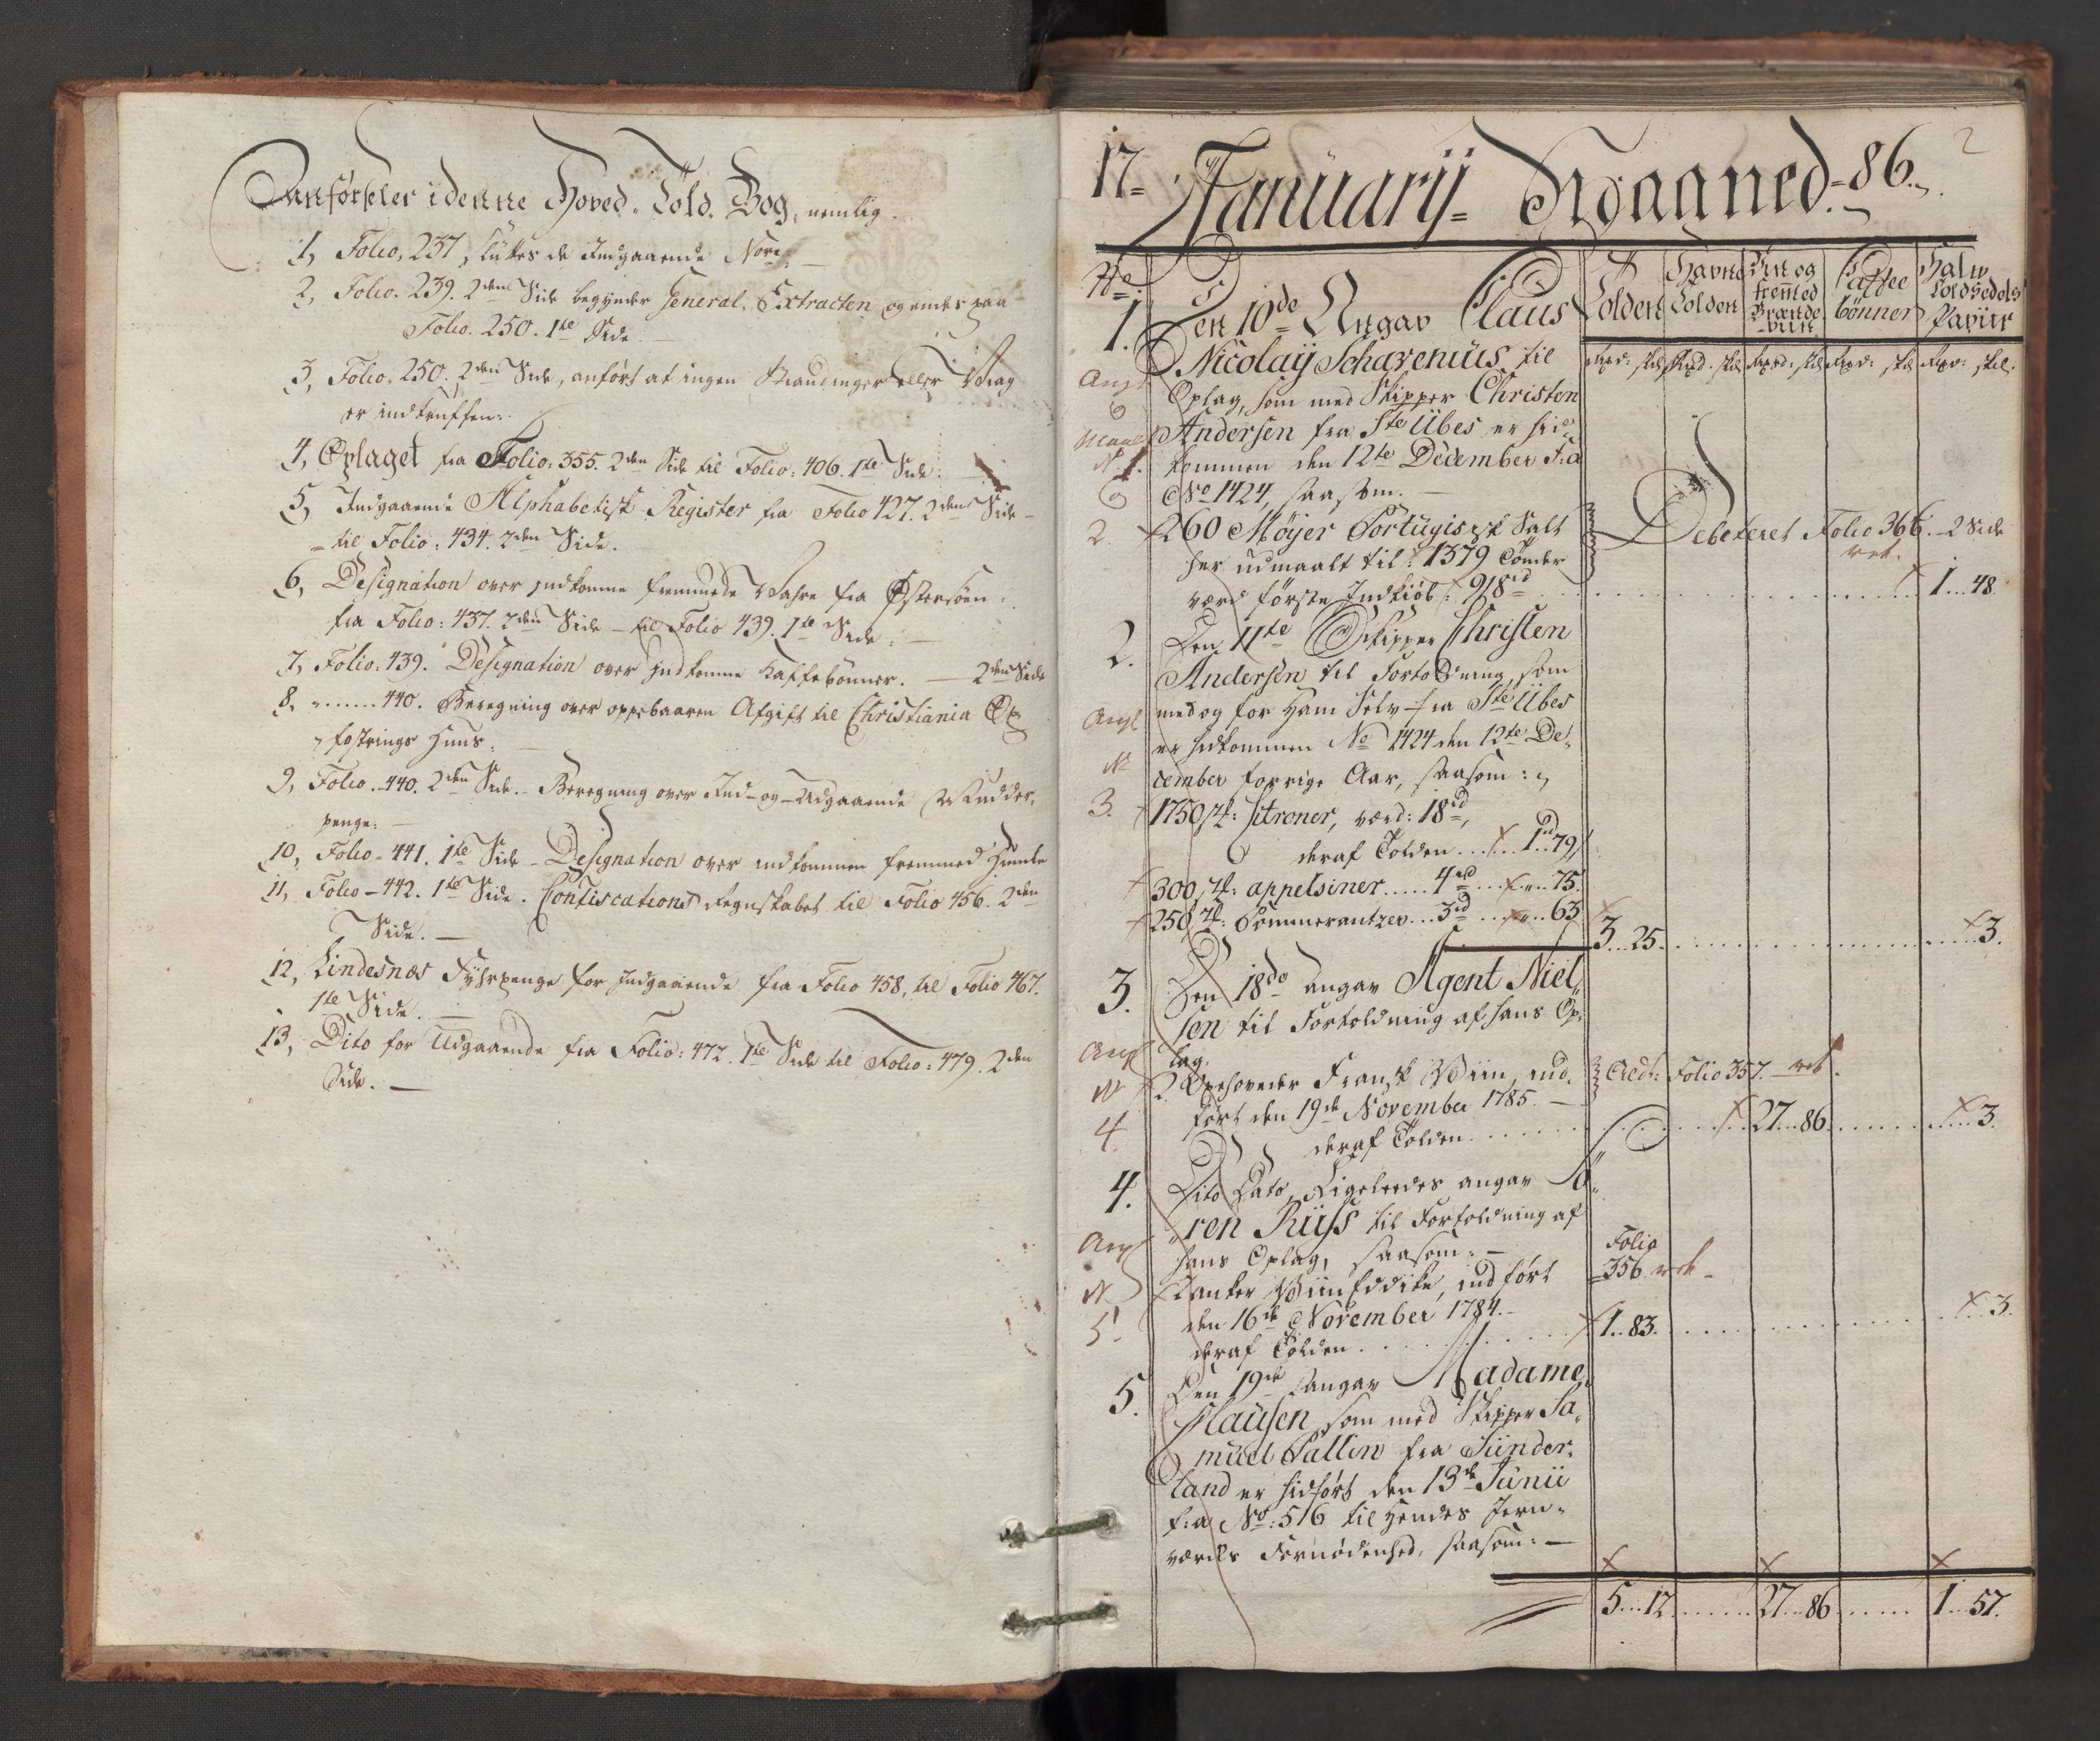 Anførseler i denne Hoved-Told-Bog, nemlig.
1, Folio, 237, sluttes de Indgaaende Nore
2, Folio. 239. 2den Side begynder General-Extracten og endes paa
Folio. 250. 1te Side.
3, Folio. 250. 2den Side, anført at ingen Strandinger eller Vrag
er indtruffen.
4, Oplaget fra Folio: 355. 2den Side til Folio: 406. 1te Side.
5, Indgaaende Alphabetisk Register fra Folio 427. 2den Side
til Folio: 434. 2den Side.
6, Designation over indkomne fremmede Vahre fra Østersöen
fra Folio: 437. 2den Side - til Folio 439. 1te Side.
7, Folio: 439. Designation over Indkomne Kaffebönner. — 2den Side
8, " ...... 440. Beregning over oppebaaren Afgift til Christiania Op
fostrings Huus.
9, Folio. 440. 2den Side. Beregning over Ind- og Udgaaende Mudder-
penge.
10, Folio - 441. 1te Side - Designation over indkommen fremmed Humle
11, Folio - 442. 1te Side. Confiscations Regnskabet til Folio 456. 2den
Side.
12, Lindesnæs Fyhrpenge for Indgaaende fra Folio 458, til Folio 467.
1te Side.
13, Dito for Udgaaende fra Folio: 472. 1te Side til Folio: 479. 2den
Side.
2
17 = Januarij = Maaned = 86.
No
Tolden
Havne Tolden
Viin og fremmed Brændeviin
Caffee bönner
Halv Toldsedels Papiir
Rxd: skl Rxd: skl Rxd: skl Rxd: skl Rxd: skl.
1. Den 10de Angav Claus
Nicolaij Scharenius til
Oplag, som med Skipper Christen
Andersen fra Ste Übes er hid-
kommen den 12te December F: A
No 1424, saasom.
260 Møyer Portugisisk Salt
her udmaalt til 1379 Tønder
værd første Indkiøb: 918 rd
Debeteret Folio 366. 2 Side
1 .. 48.
2. Den 11te Skipper Christen
Andersen til Fortoldning, som
med og for Ham Selv fra Ste Übes
er hidkommen No 1424 den 12te De-
cember forrige Aar, saasom:
1750 st: Citroner, værd: 18 rd,
deraf Tolden ... 1 .. 79
300, st: appelsiner ..... 4 rd ... " .. 75.
250, st: Pommerantzer ... 3 rd ... " .. 63
3 .. 25. 3.
3. Den 18de angav Agent Niel-
sen til Fortoldning af hans Op-
lag.
2. Oxehoveder Fransk Viin, ind-
ført den 19de November 1785.
deraf Tolden
Credt: Folio 357. ret.
27 .. 86. 3.
4. Dito Dato, Ligeleedes angav Sö-
ren Rüss til Fortoldning af
hans Oplag, saasom:
Anker Viin Eddike, indført
den 16de November 1784.
deraf Tolden
Folio
356 ret
1 .. 83. 3.
5. Den 19de angav Madame
Clausen, som med Skipper Sa-
muel Pallin fra Sünder-
land er hidført den 13de Junii
f: a No: 516 til Hendes Jern-
værks Fornødenhed, saasom:
5 .. 12. 27 .. 86. 1 .. 57.